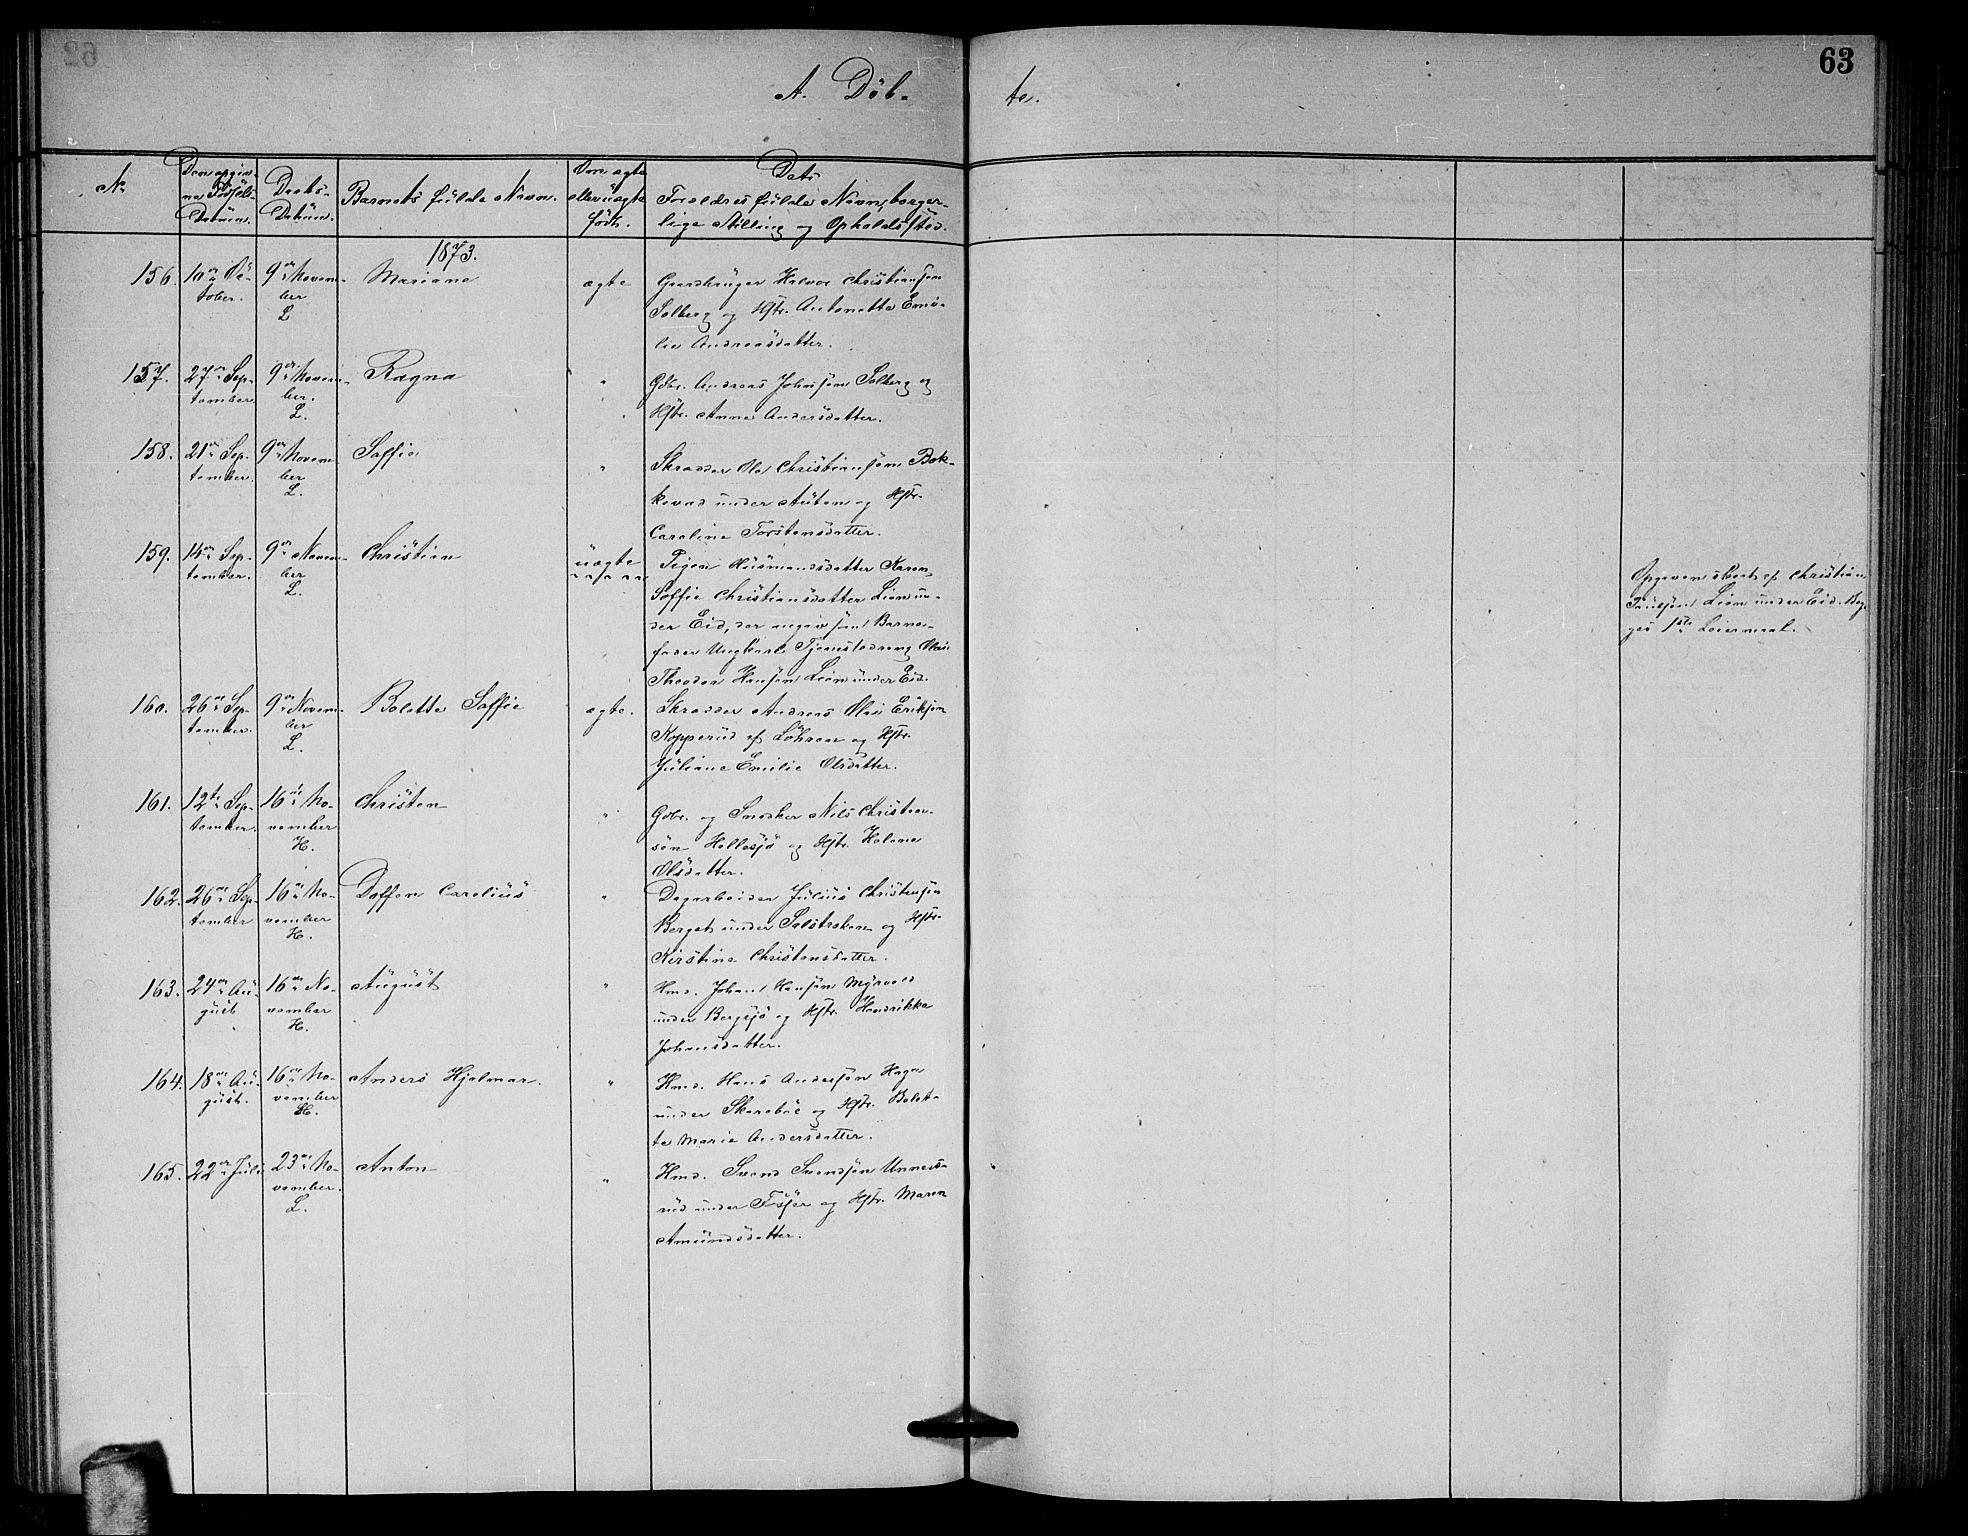 63
A. Døb-
te.
No
Den opgiv-
ne Fødsels-
Datum.
Daabs-
Datum.
Barnets fulde Navn.
Om ægte
eller uægte
født.
Dets
Forældres fulde Navn, borger-
lige Stilling og Opholdssted.
1873.
156. 10de Oc-
tober. 9de Novem-
ber
L
Mariane
ægte
Gaardbruger Halvor Christiansen
Solberg og Hstr. Antonette Emi-
lie Andreasdatter.
157. 27de Sep-
tember. 9de Novem-
ber.
L.
Ragna
"
Gdbr. Andreas Johnsen Solberg og
Hstr. Anne Andersdatter.
158. 21de Sep-
tember. 9de Novem
ber
L.
Soffie
"
Skrædder Ole Christiansen Bek-
kevad under Auten og Hstr.
Caroline Torstensdatter.
159. 14de Sep-
tember. 9de Novem-
ber
L.
Christian
uægte
Pigen Husmandsdatter Karen
Soffie Christiansdatter Lien un-
der Eid, der angav som Barne-
fader Ungkarl Tjenestedreng Olai
Theodor Hansen Lien under Eid.
Opgaven skeet af Christian
Lien under Eid. Beg-
ges 1ste Leiermaal.
160. 26de Sep-
tember. 9de Novem-
ber
L.
Bolette Soffie
ægte.
Skrædder Andreas Olai Eriksen
Kopperud af Løhren og Hstr.
Juliane Emilie Olsdatter.
161. 12te Sep-
tember. 16de No-
vember
H.
Christen
"
Gdbr. og Snedker Nils Christian-
sen Hellesjø og Hstr. Helene
Olsdatter.
162. 26de Sep-
tember 16de No-
vember
H.
Deffen Carolius
"
Dagarbeider Julius Christensen
Berget under Sølstrøkeren og Hstr.
Kirstine Christensdatter.
163. 24de Au-
gust 16de No-
vember
H.
August
"
Hmd. Johan Hansen Myrvold
under Bergsjø og Hstr. Hendrikke
Johansdatter.
164. 18de Au-
gust. 16de No-
vember
H.
Anders Hjalmar.
"
Hmd. Hans Andersen Haga
under Skarebøe og Hstr. Bolet-
te Marie Andersdatter.
165. 22de Juli 23de No-
vember.
L.
Anton
"
Hmd. Svend Svendsen Unners-
rud under Fosser og Hstr. Maren
Amundsdatter.